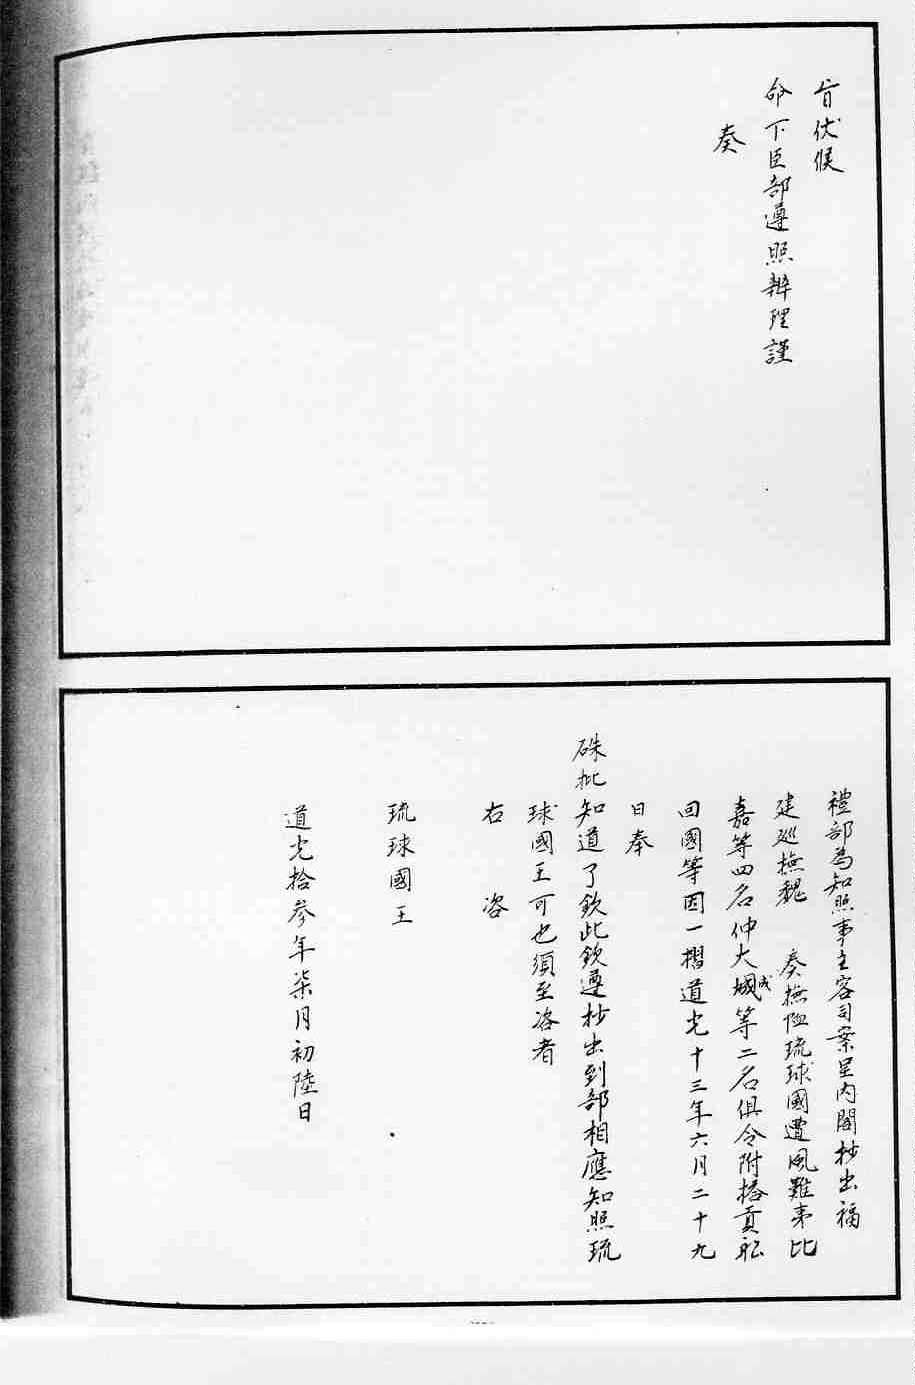 旨伏候
命下臣部遵照辦理謹
奏
禮部為知照事主客司案呈內閣抄出福
建巡撫魏 奏撫卹琉球國遭風難夷比
嘉等四名仲大城等二名俱令附搭貢船
回國等因一摺道光十三年六月二十九
日奉
硃批知道了欽此欽遵抄出到部相應知照琉
球國王可也須至咨者
右 咨
琉球國王
道光拾參年柒月初陸日